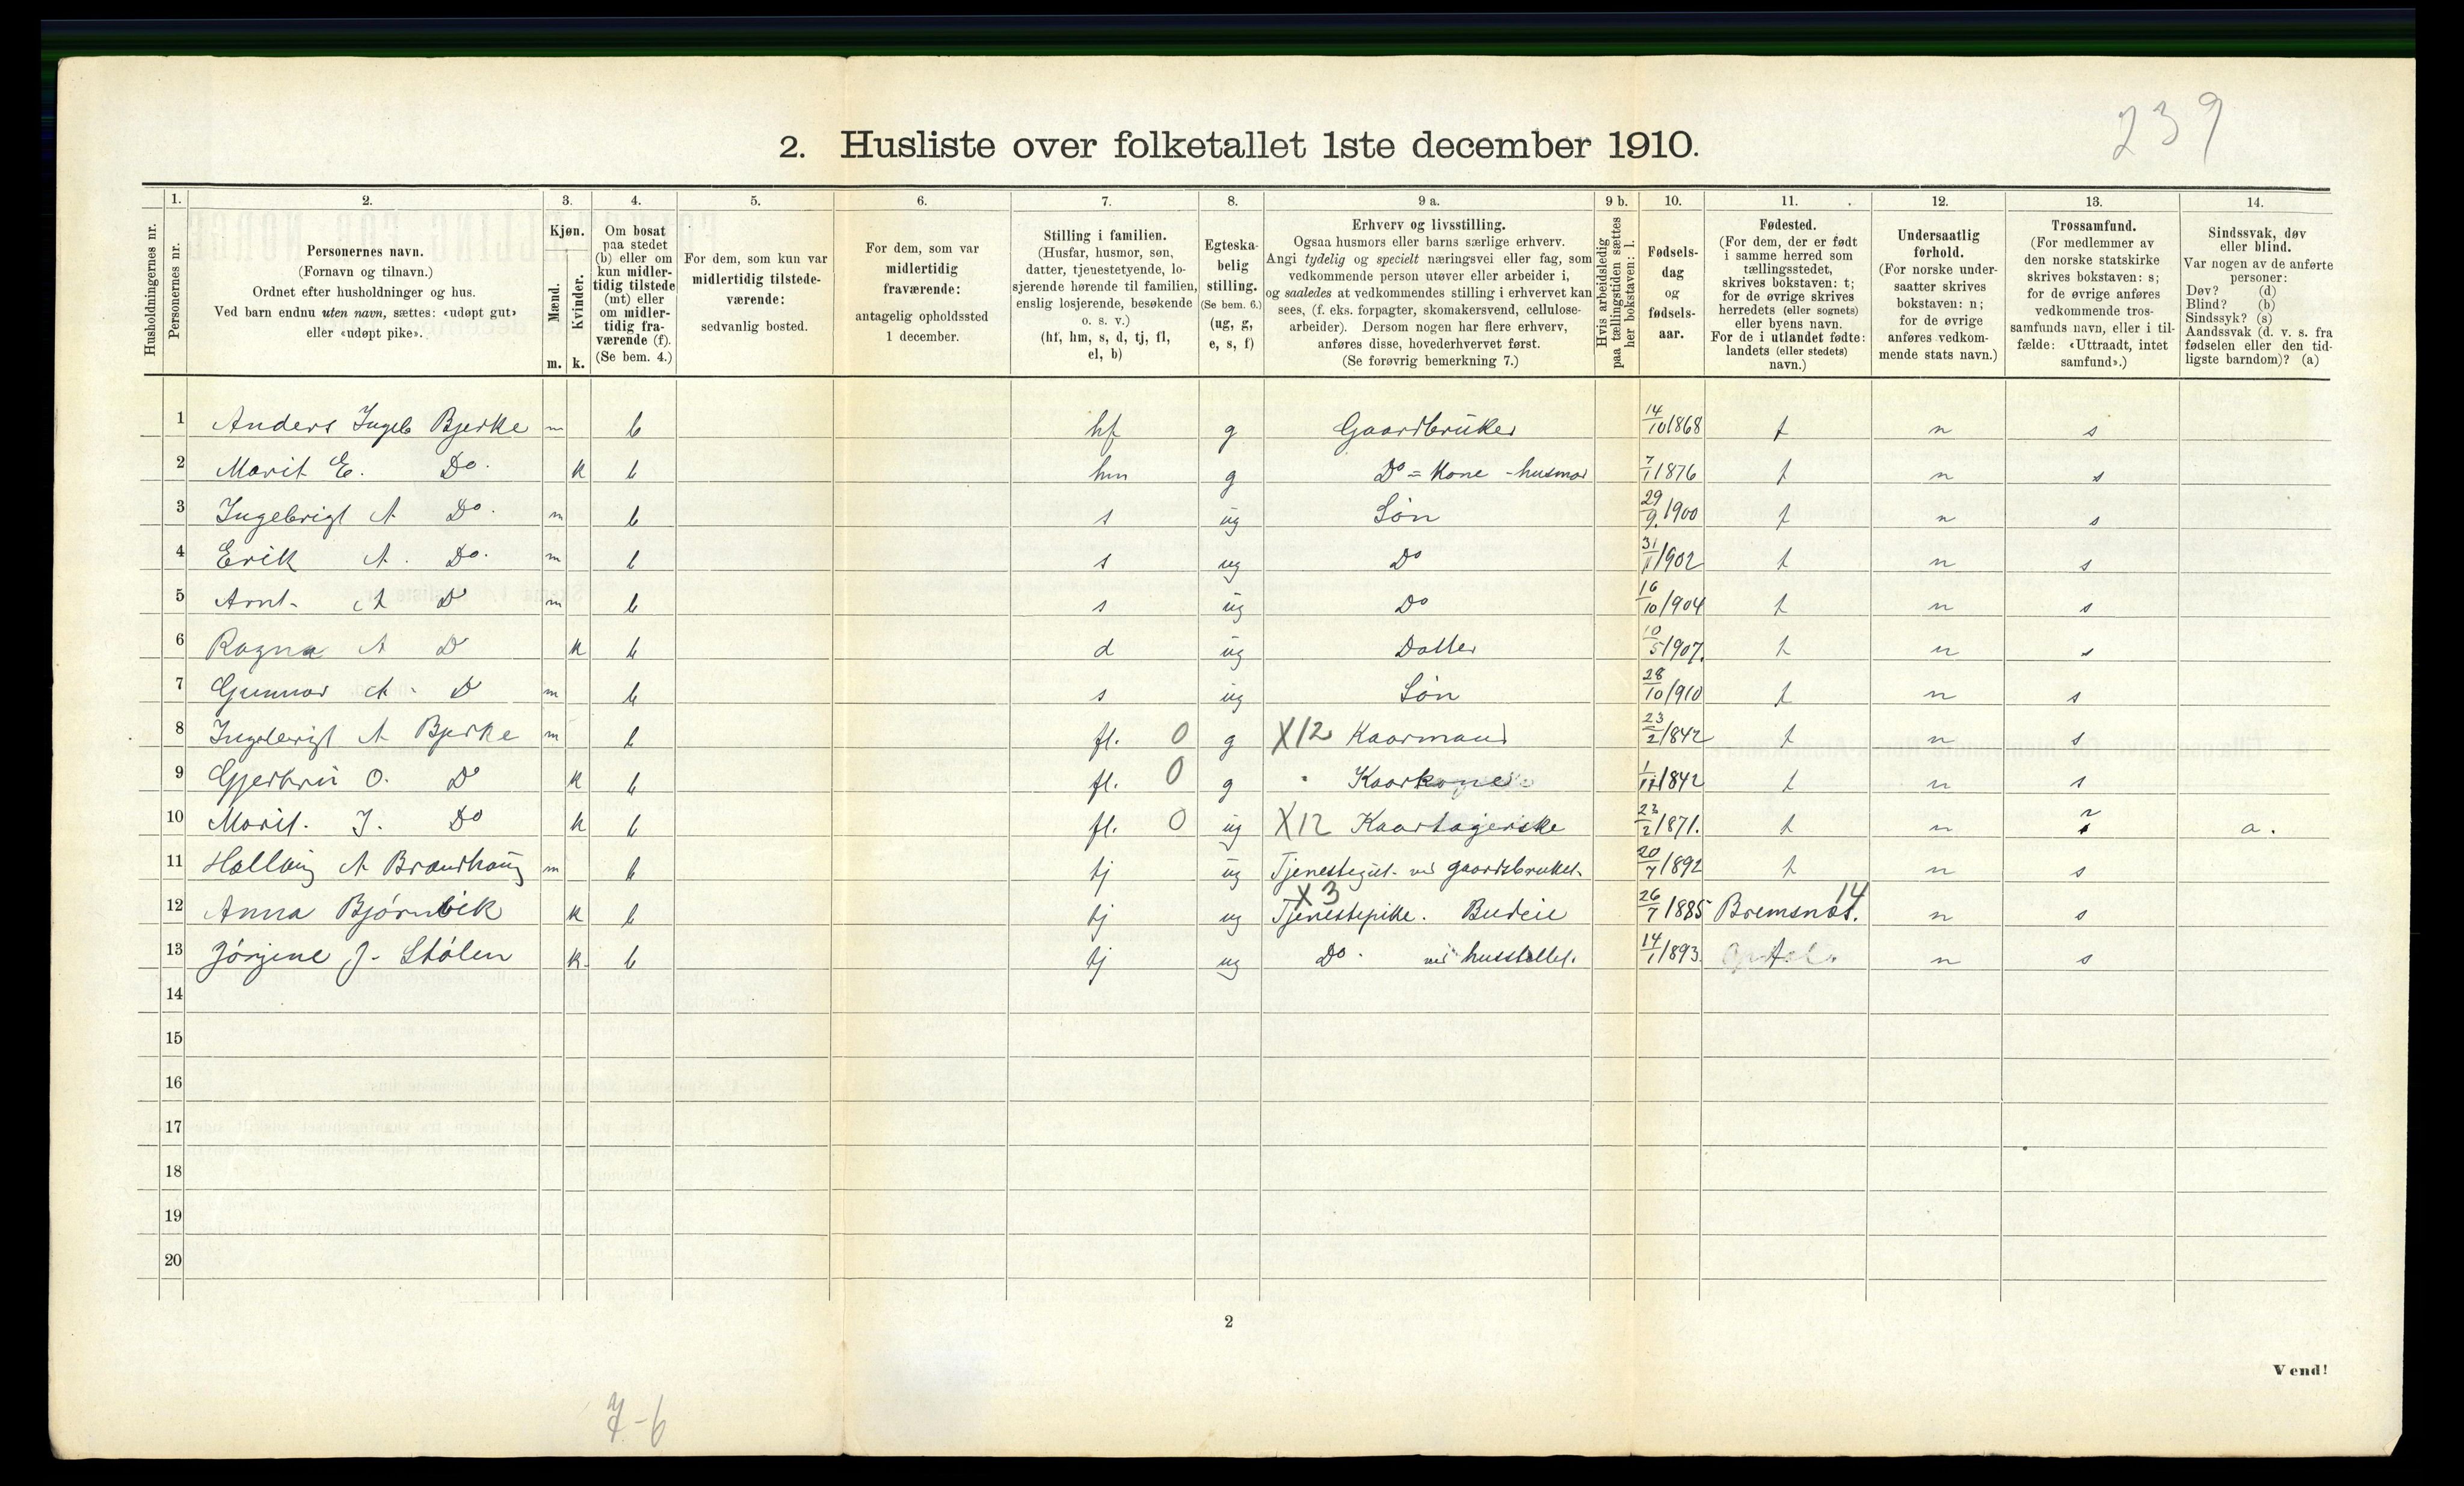 239
2. Husliste over folketallet 1ste december 1910.
1. 2. 3. 4. 5. 6. 7. 8. 9 a. 9 b. 10. 11. 12. 13. 14.
Husholdningernes nr.
Personernes nr.
Personernes navn.
(Fornavn og tilnavn.)
Ordnet efter husholdninger og hus.
Ved barn endnu uten navn, sættes: «udøpt gut»
eller «udøpt pike».
Kjøn.
Mænd.
Kvinder.
m. k.
Om bosat
paa stedet
(b) eller om
kun midler-
tidig tilstede
(mt) eller
om midler-
tidig fra-
værende (f).
(Se bem. 4.)
For dem, som kun var
midlertidig tilstede-
værende:
sedvanlig bosted.
For dem, som var
midlertidig
fraværende:
antagelig opholdssted
1 december.
Stilling i familien.
(Husfar, husmor, søn,
datter, tjenestetyende, lo-
sjerende hørende til familien,
enslig losjerende, besøkende
o. s. v.)
(hf, hm, s, d, tj, fl,
el, b)
Egteska-
belig
stilling.
(Se bem. 6.)
(ug, g,
e, s, f)
Erhverv og livsstilling.
Ogsaa husmors eller barns særlige erhverv.
Angi tydelig og specielt næringsvei eller fag, som
vedkommende person utøver eller arbeider i,
og saaledes at vedkommendes stilling i erhvervet kan
sees, (f. eks. forpagter, skomakersvend, cellulose-
arbeider). Dersom nogen har flere erhverv,
anføres disse, hovederhvervet først.
(Se forøvrig bemerkning 7.)
Hvis arbeidsledig
paa tællingstiden sættes
her bokstaven: l.
Fødsels-
dag
og
fødsels-
aar.
Fødested.
(For dem, der er født
i samme herred som
tællingsstedet,
skrives bokstaven: t;
for de øvrige skrives
herredets (eller sognets)
eller byens navn.
For de i utlandet fødte:
landets (eller stedets)
navn.)
Undersaatlig
forhold.
(For norske under-
saatter skrives
bokstaven: n;
for de øvrige
anføres vedkom-
mende stats navn.)
Trossamfund.
(For medlemmer av
den norske statskirke
skrives bokstaven: s;
for de øvrige anføres
vedkommende tros-
samfunds navn, eller i til-
fælde: «Uttraadt, intet
samfund».)
Sindssvak, døv
eller blind.
Var nogen av de anførte
personer:
Døv? (d)
Blind? (b)
Sindssyk? (s)
Aandssvak (d. v. s. fra
fødselen eller den tid-
ligste barndom)? (a)
1 Anders Ingeb Bjerke m b hf g Gaardbruker 14/10 1868 t n s
2 Marit E. Do. k b hm g Do = Kone - husmor 7/1 1876 t n s
3 Ingebrigt A Do. m b s ug Søn 29/9. 1900 t n s
4 Erik A. Do. m b s ug Do 31/1 1902 t n s
5 Arnt. A D m b s ug Do 16/10 1904 t n s
6 Ragna A D k b d ug Datter 10/5 1907. t n s
7 Gunnar A. D m b s ug Søn 28/10 1910 t n s
8 Ingebrigt A Bjerke m b fl. 0 g X12 Kaarmand 23/2 1842 t n s
9 O. D k b fl. 0 g Kaarkone 1/11 1842 t n s
10 Marit. I. Do k b fl. 0 ug X12 Kaartagerske 23/2 1871. t n s a.
11 A Brandhaug m b tj ug Tjenestegut ved gaardsbruket. 20/7 1892 t n s
12 Anna Bjørnvik k b tj ug X3 Tjenestepike. Budeie 26/7 1885 Bremsnæs. 14 n s
13 Jørgine J. Stølen k. b tj ug Do. ved husstellet. 14/1 1893. n s
14
15
16
17
18
19
20
2
Vend!
7-6